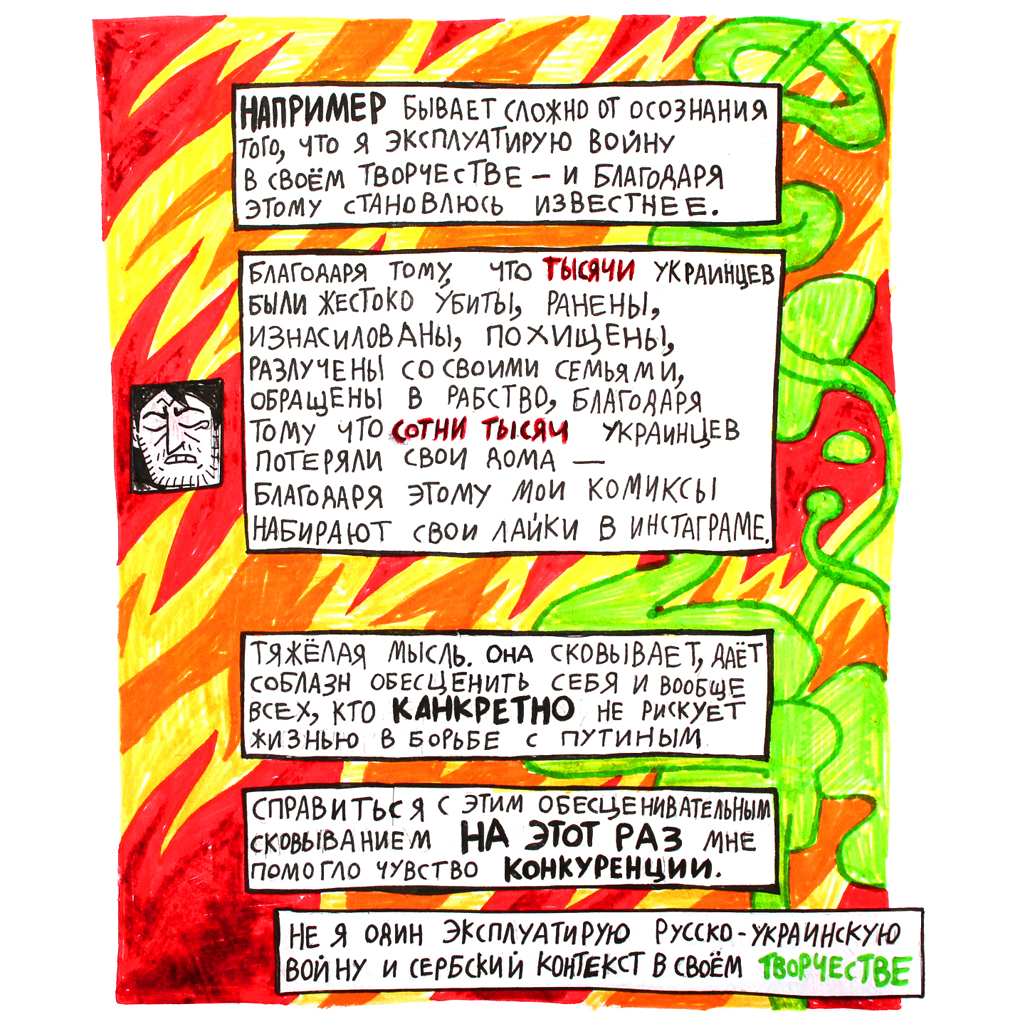 НАПРИМЕР БЫВАЕТ СЛОЖНО ОТ ОСОЗНАНИЯ
ТОГО, ЧТО Я ЭКСПЛУАТИРУЮ ВОЙНУ
В СВОЁМ ТВОРЧЕСТВЕ – И БЛАГОДАРЯ
ЭТОМУ СТАНОВЛЮСЬ ИЗВЕСТНЕЕ.
БЛАГОДАРЯ ТОМУ, ЧТО ТЫСЯЧИ УКРАИНЦЕВ
БЫЛИ ЖЕСТОКО УБИТЫ, РАНЕНЫ,
ИЗНАСИЛОВАНЫ, ПОХИЩЕНЫ,
РАЗЛУЧЕНЫ СО СВОИМИ СЕМЬЯМИ,
ОБРАЩЕНЫ В РАБСТВО, БЛАГОДАРЯ
ТОМУ ЧТО СОТНИ ТЫСЯЧ УКРАИНЦЕВ
ПОТЕРЯЛИ СВОИ ДОМА —
БЛАГОДАРЯ ЭТОМУ МОИ КОМИКСЫ
НАБИРАЮТ СВОИ ЛАЙКИ В ИНСТАГРАМЕ.
ТЯЖЁЛАЯ МЫСЛЬ. ОНА СКОВЫВАЕТ, ДАЁТ
СОБЛАЗН ОБЕСЦЕНИТЬ СЕБЯ И ВООБЩЕ
ВСЕХ, КТО КАНКРЕТНО НЕ РИСКУЕТ
ЖИЗНЬЮ В БОРЬБЕ С ПУТИНЫМ
СПРАВИТЬСЯ С ЭТИМ ОБЕСЦЕНИВАТЕЛЬНЫМ
СКОВЫВАНИЕМ НА ЭТОТ РАЗ МНЕ
ПОМОГЛО ЧУВСТВО КОНКУРЕНЦИИ.
НЕ Я ОДИН ЭКСПЛУАТИРУЮ РУССКО-УКРАИНСКУЮ
ВОЙНУ И СЕРБСКИЙ КОНТЕКСТ В СВОЁМ ТВОРЧЕСТВЕ